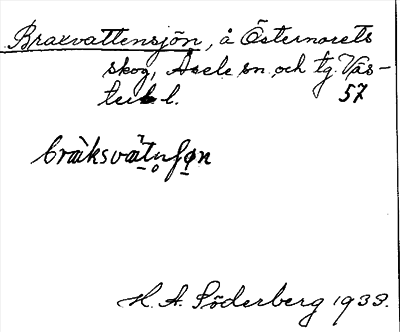 Braxvattensjön, å Östernorets
skog, Åsele sn och tg. Väs-
terb l. 57
bràksvàtnʃøn
H. A. Söderberg 1933.